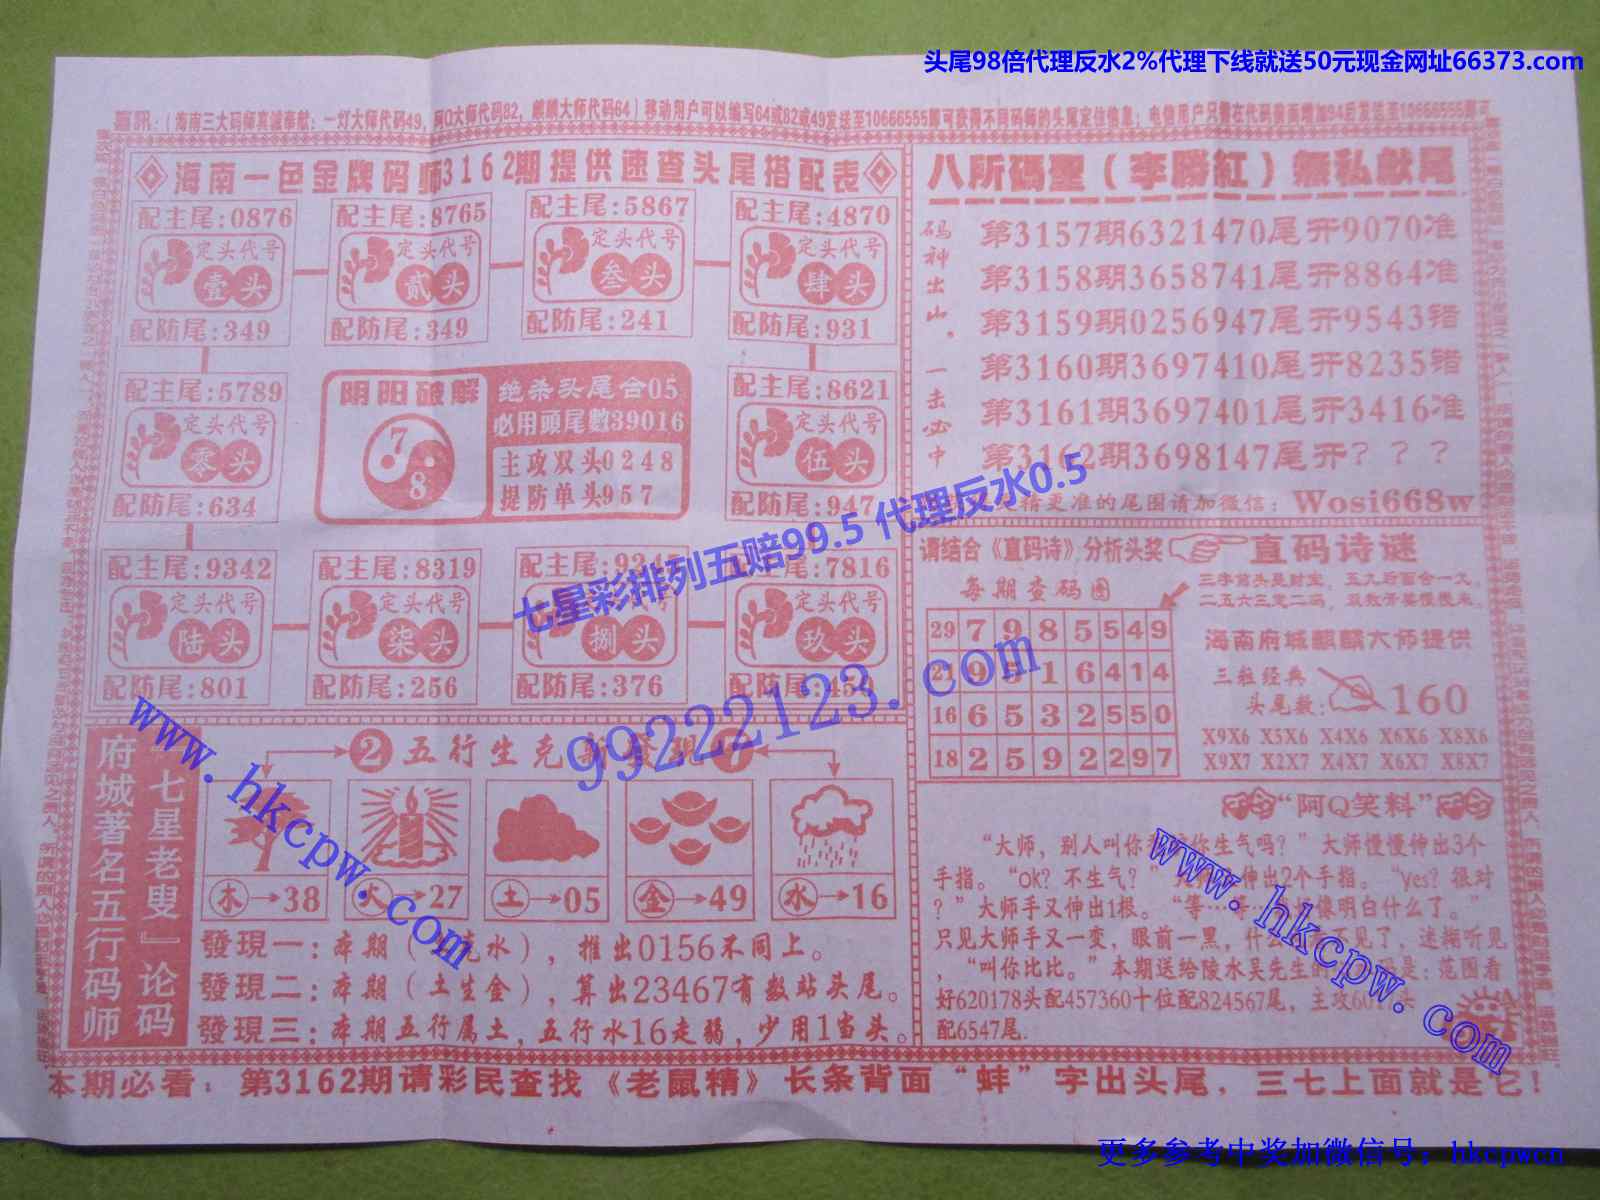 头尾98倍代理反水2%代理下线就送50元现金网址66373.com
(海南三大码师真诚奉献:一灯大师代码49,阿Q大师代码82,麒麟大师代码64)移动用户可以编写64或82或49发送至10666555即可获得不同码师的头尾定位信息;电信用户只需在代码前面增加94后发送至10666555即可
海南一色金牌码师3162期提供速查头尾搭配表
配主尾:0876
定头代号
壹头
配防尾:349
配主尾:8765
定头代号
贰头
配防尾:349
配主尾:5867
定头代号
叁头
配防尾:241
配主尾:4870
定头代号
肆头
配防尾:931
配主尾:5789
定头代号
零头
配防尾:634
阴阳破解
7
8
绝杀头尾合05
必用頭尾數39016
主攻双头0248
提防单头957
配主尾:8621
定头代号
伍头
配防尾:947
配主尾:9342
定头代号
陆头
配防尾:801
配主尾:8319
定头代号
柒头
配防尾:256
定头代号
捌头
配防尾:376
配主尾:7816
定头代号
玖头
八所碼聖(李勝紅)無私献尾
码神出山。一击必中
第3157期6321470尾开9070准
第3158期3658741尾开8864准
第3159期0256947尾开9543错
第3160期3697410尾开8235错
第3161期3697401尾开3416准
第3162期3698147尾开???
精更准的尾围请加微信:Wosi668w
请结合《直码诗》分析头奖
直码诗谜
每期查码图
29 7 9 8 5 5 4 9
21 9 5 1 6 4 1 4
16 6 5 3 2 5 5 0
18 2 5 9 2 2 9 7
三字前头是财宝,五九后面合一久。
二五六三定二码,双数开奖慢慢来。
海南府城麒麟大师提供
三粒经典
头尾数:
160
X9X6 X5X6 X4X6 X6X6 X8X6
X9X7 X2X7 X4X7 X6X7 X8X7
『七星老叟』论码
府城著名五行码师
2五行生克新發現
木→38
火→27
土→05
金→49
水→16
發現一:本期(克水),推出0156不同上。
發現二:本期(土生金),算出23467有数站头尾。
發現三:本期五行属土,五行水16走弱,少用1当头。
“阿Q笑料”
“大师,别人叫你 你生气吗?”大师慢慢伸出3个
手指。“ok?不生气?” 伸出2个手指。“yes?很对
?”大师手又伸出1根。“等…等… 像明白什么了。”
只见大师手又一变,眼前一黑,什 不见了,迷糊听见
,“叫你比比。”本期送给陵水吴先生的 码是:范围看
好620178头配457360十位配824567尾,主攻601 头
配6547尾.
本期必看:第3162期请彩民查找《老鼠精》长条背面“蚌”字出头尾,三七上面就是它!
七星彩排列五赔99.5 代理反水0.5
99222123.com
www.hkcpww.com
www.hkcpww.com
更多参考中奖加微信号:hkcpwcn